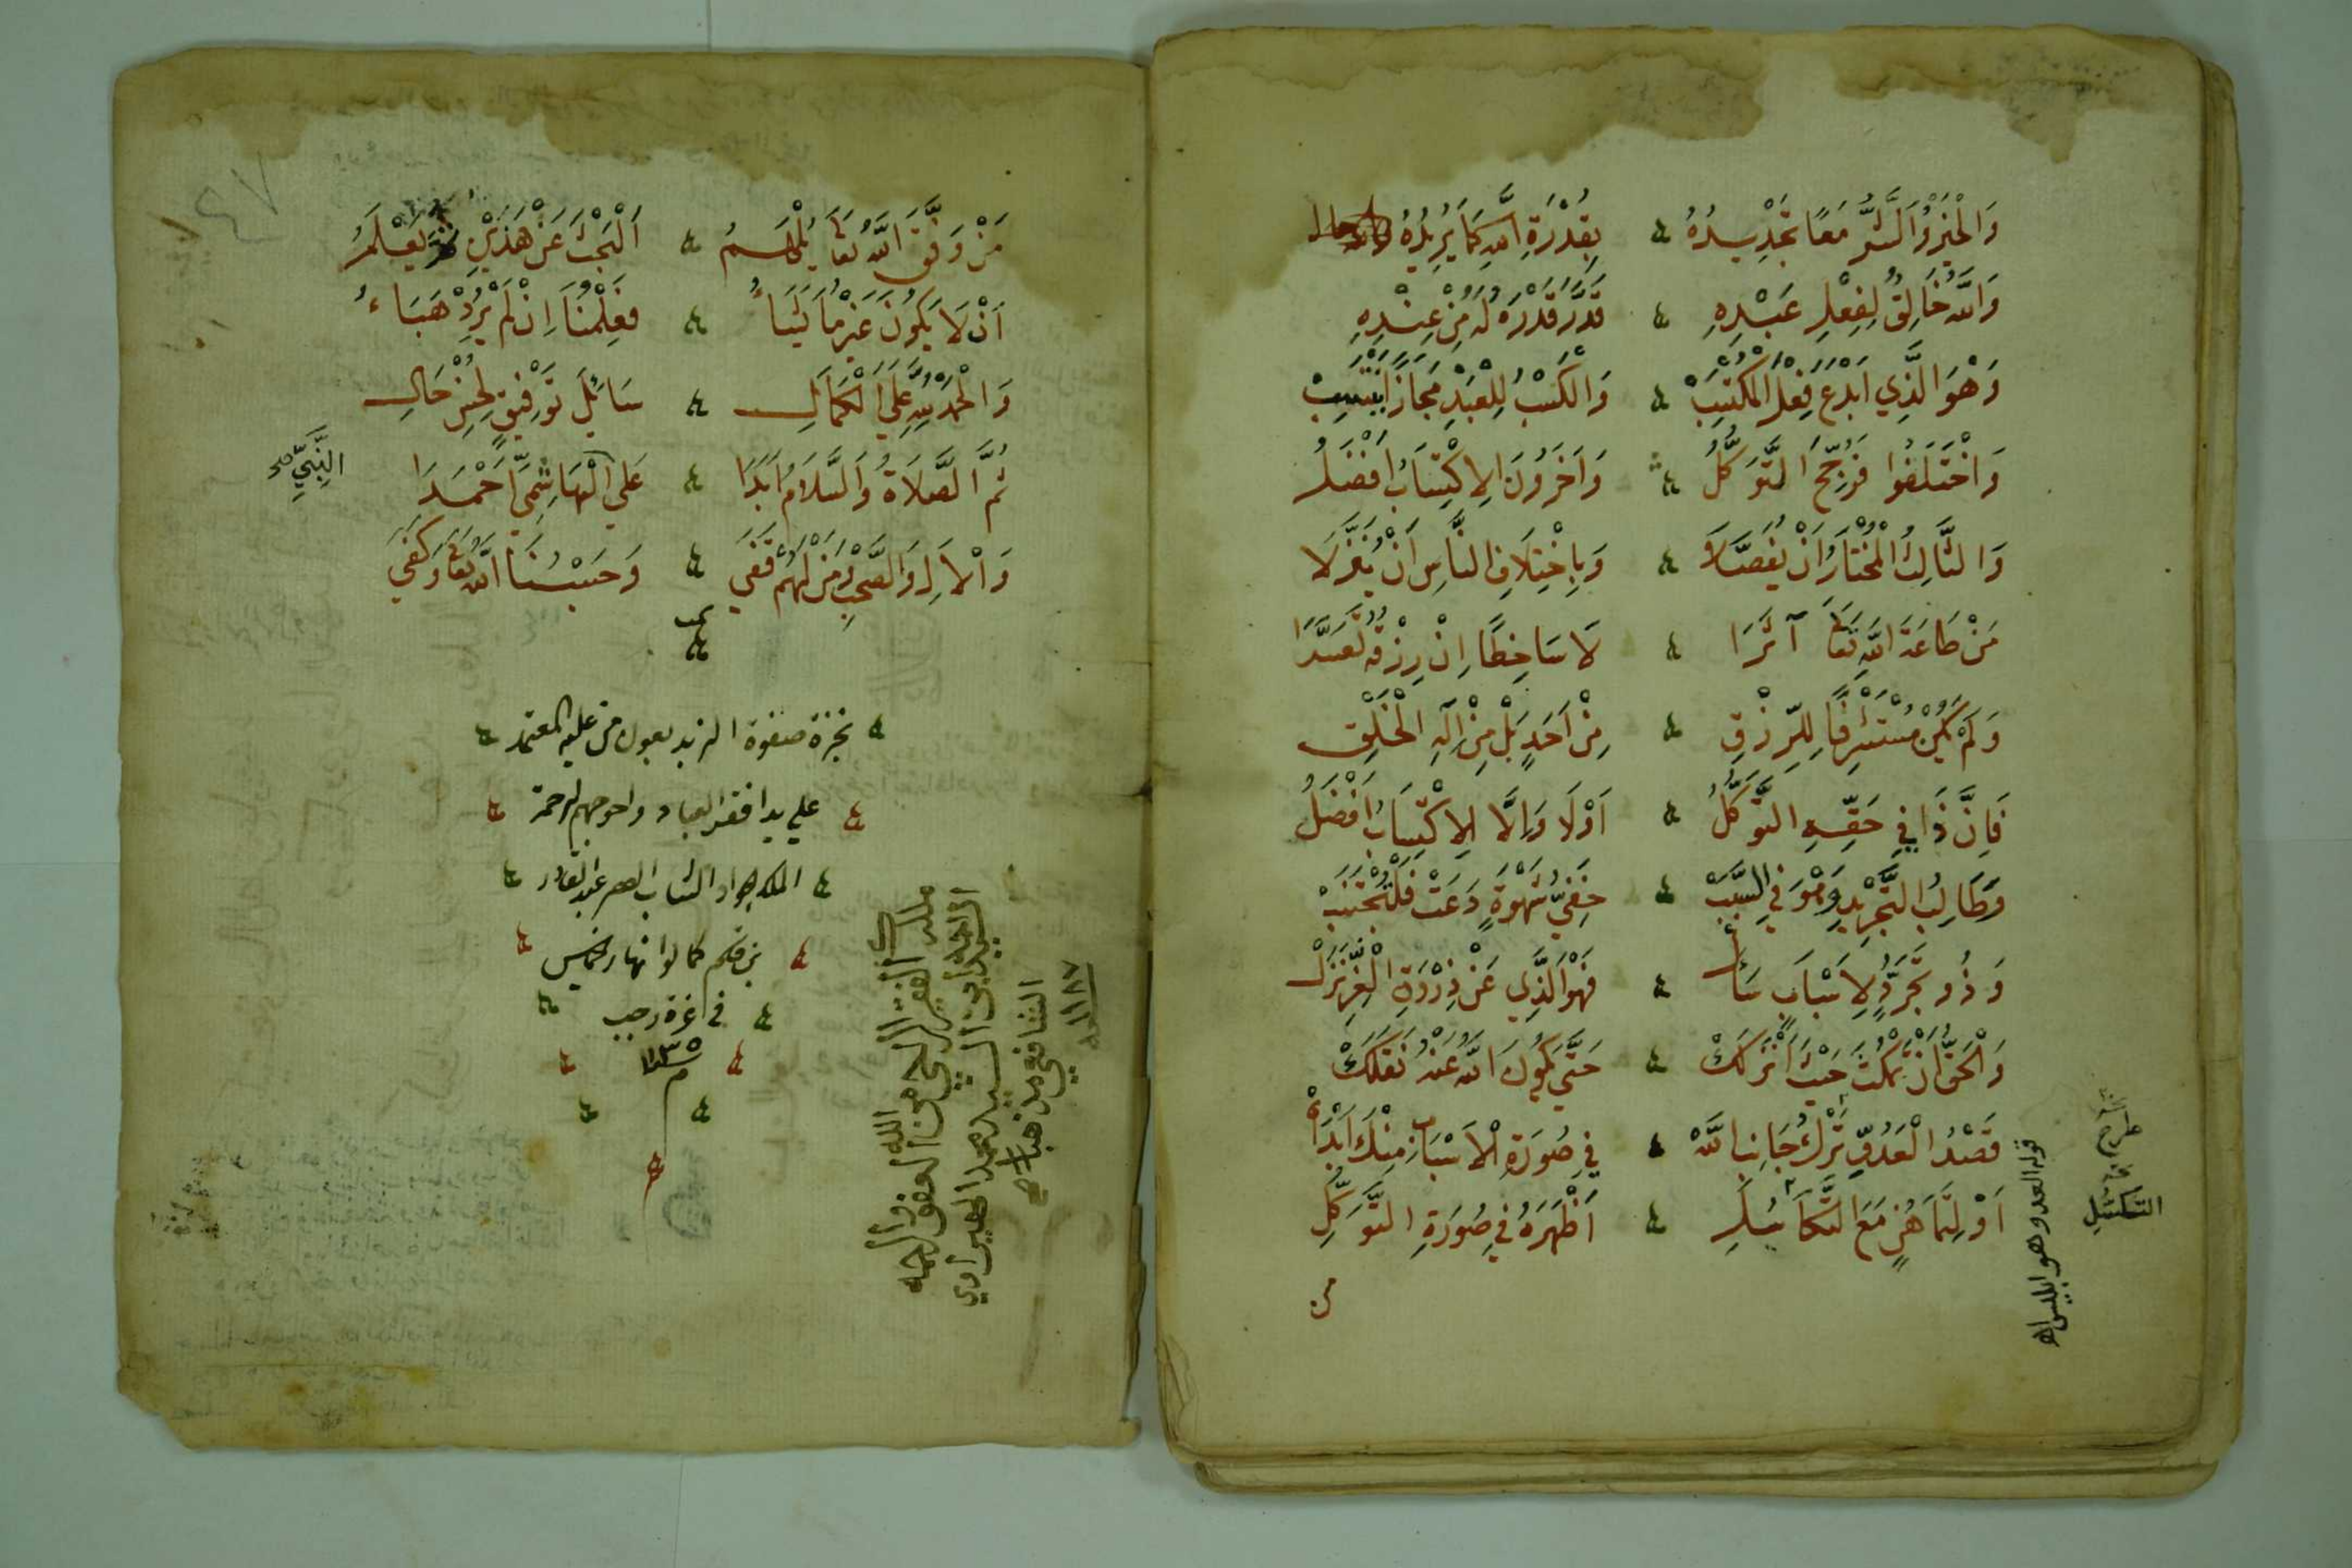 وَالْخَيْرُ وَالشَّرُّ مَعًا تَجْدِيدُهُ ۞ بِقُدْرَةِ اللهِ كَمَا يُرِيدُهُ
وَاللهُ خَالِقٌ لِفِعْلِ عَبْدِهِ ۞ قَدَّرَ قُدْرَةً لَهُ مِنْ عِنْدِهِ
وَهْوَ الَّذِي أَبْدَعَ فِعْلَ الْمُكْتَسِبْ ۞ وَالْكَسْبُ لِلْعَبْدِ مَجَازًا يَنْتَسِبْ
وَاخْتَلَفُوا فَرُجِّحَ التَّوَكُّلُ ۞ وَآخَرُونَ الِاكْتِسَابُ أَفْضَلُ
وَالثَّالِثُ الْمُخْتَارُ أَنْ يُفَصَّلَا ۞ وَبِاخْتِلَافِ النَّاسِ أَنْ يُنَزَّلَا
مَنْ طَاعَةَ اللهِ تَعَالَى آثَرَا ۞ لَا سَاخِطًا إِنْ رِزْقُهُ تَعَسَّرَا
وَلَمْ يَكُنْ مُسْتَشْرِفًا لِلرِّزْقِ ۞ مِنْ أَحَدٍ بَلْ مِنْ إِلَهِ الْخَلْقِ
فَإِنَّ ذَا فِي حَقِّهِ التَّوَكُّلُ ۞ أَوْلَا وَإِلَّا الِاكْتِسَابُ أَفْضَلُ
وَطَالِبُ التَّجْرِيدِ وَهْوَ فِي السَّبَبْ ۞ خَفِيُّ شَهْوَةٍ دَعَتْ فَلْتُجْتَنَبْ
وَذُو تَجَرُّدٍ لِأَسْبَابٍ سَأَلْ ۞ فَهْوَ الَّذِي عَنْ ذِرْوَةِ الْعِزِّ نَزَلْ
وَالْحَقُّ أَنْ تَمْكُثَ حَيْثُ أَنْزَلَكْ ۞ حَتَّى يَكُونَ اللهُ عَنْهُ نَقَلَكْ
قَصْدُ الْعَدُوِّ تَرْكُ جَانِبِ اللهْ ۞ فِي صُورَةِ الْأَسْبَابِ مِنْكَ أَبْدَاهْ
أَوْ لِتَمَاهُنٍ مَعَ التَّكَاسُلِ ۞ أَظْهَرَهُ فِي صُورَةِ التَّوَكُّلِ
من
قوله العدو وهو ابليس اه
مَنْ وَفَّقَ اللهُ تَعَالَى يُلْهَمُ ۞ الْبَحْثَ عَنْ هَذَيْنِ ثُمَّ يَعْلَمُ
أَنْ لَا يَكُونَ غَيْرُ مَا يَشَاءُ ۞ فَعِلْمُنَا إِنْ لَمْ يُرِدْ هَبَاءُ
وَالْحَمْدُ لِلَّهِ عَلَى الْكَمَالِ ۞ سَائِلَ تَوْفِيقٍ لِحُسْنِ حَالِ
ثُمَّ الصَّلَاةُ وَالسَّلَامُ أَبَدَا ۞ عَلَى الْهَاشِمِيِّ أَحْمَدَا
النَّبِيِّ صح
وَالْآلِ وَالصَّحْبِ وَمَنْ لَهُمْ قَفَى ۞ وَحَسْبُنَا اللهُ تَعَالَى وَكَفَى
نجزة صفوة الزبد بعون من عليه المعتمد
علي يد افقر العباد واحوجهم لرحمة
الملك الجواد الشاب عبد القادر
نهار خميس
في غرة رجب
١١٣٥
ملك الفقير الي الله من العفو والرحمه
السيد محمد
الشافعي مذهبا
سنة ١١٨٧